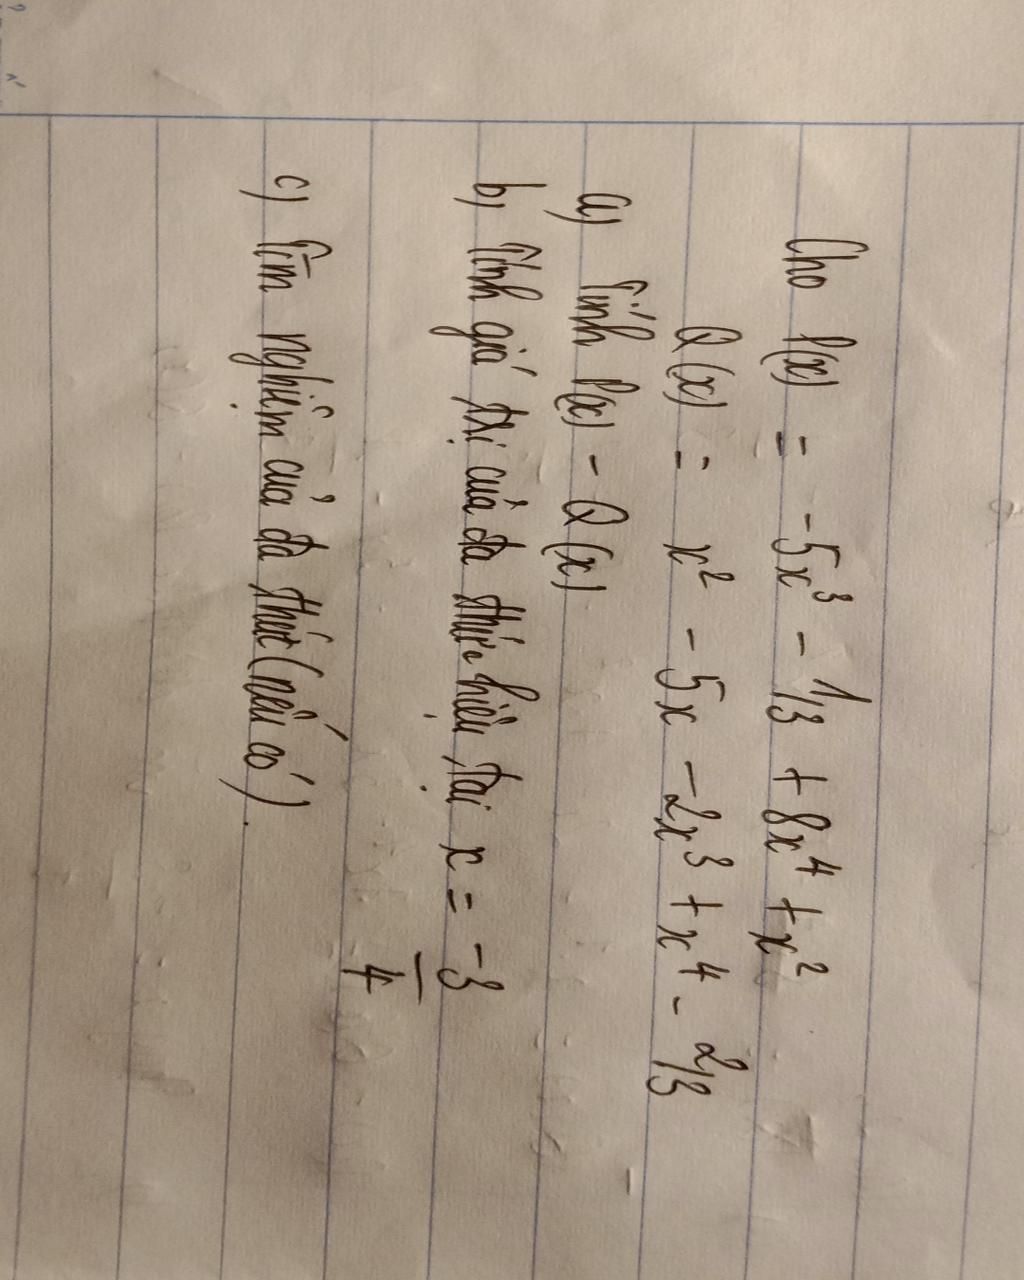 Cho P(x) = -5x³ - 1/3 + 8x⁴ + x²
Q(x) = x² - 5x - 2x³ + x⁴ - 2/3
a) Tính P(x) - Q(x)
b) Tính giá trị của đa thức hiệu tại x = -3/4
c) Tìm nghiệm của đa thức (nếu có).